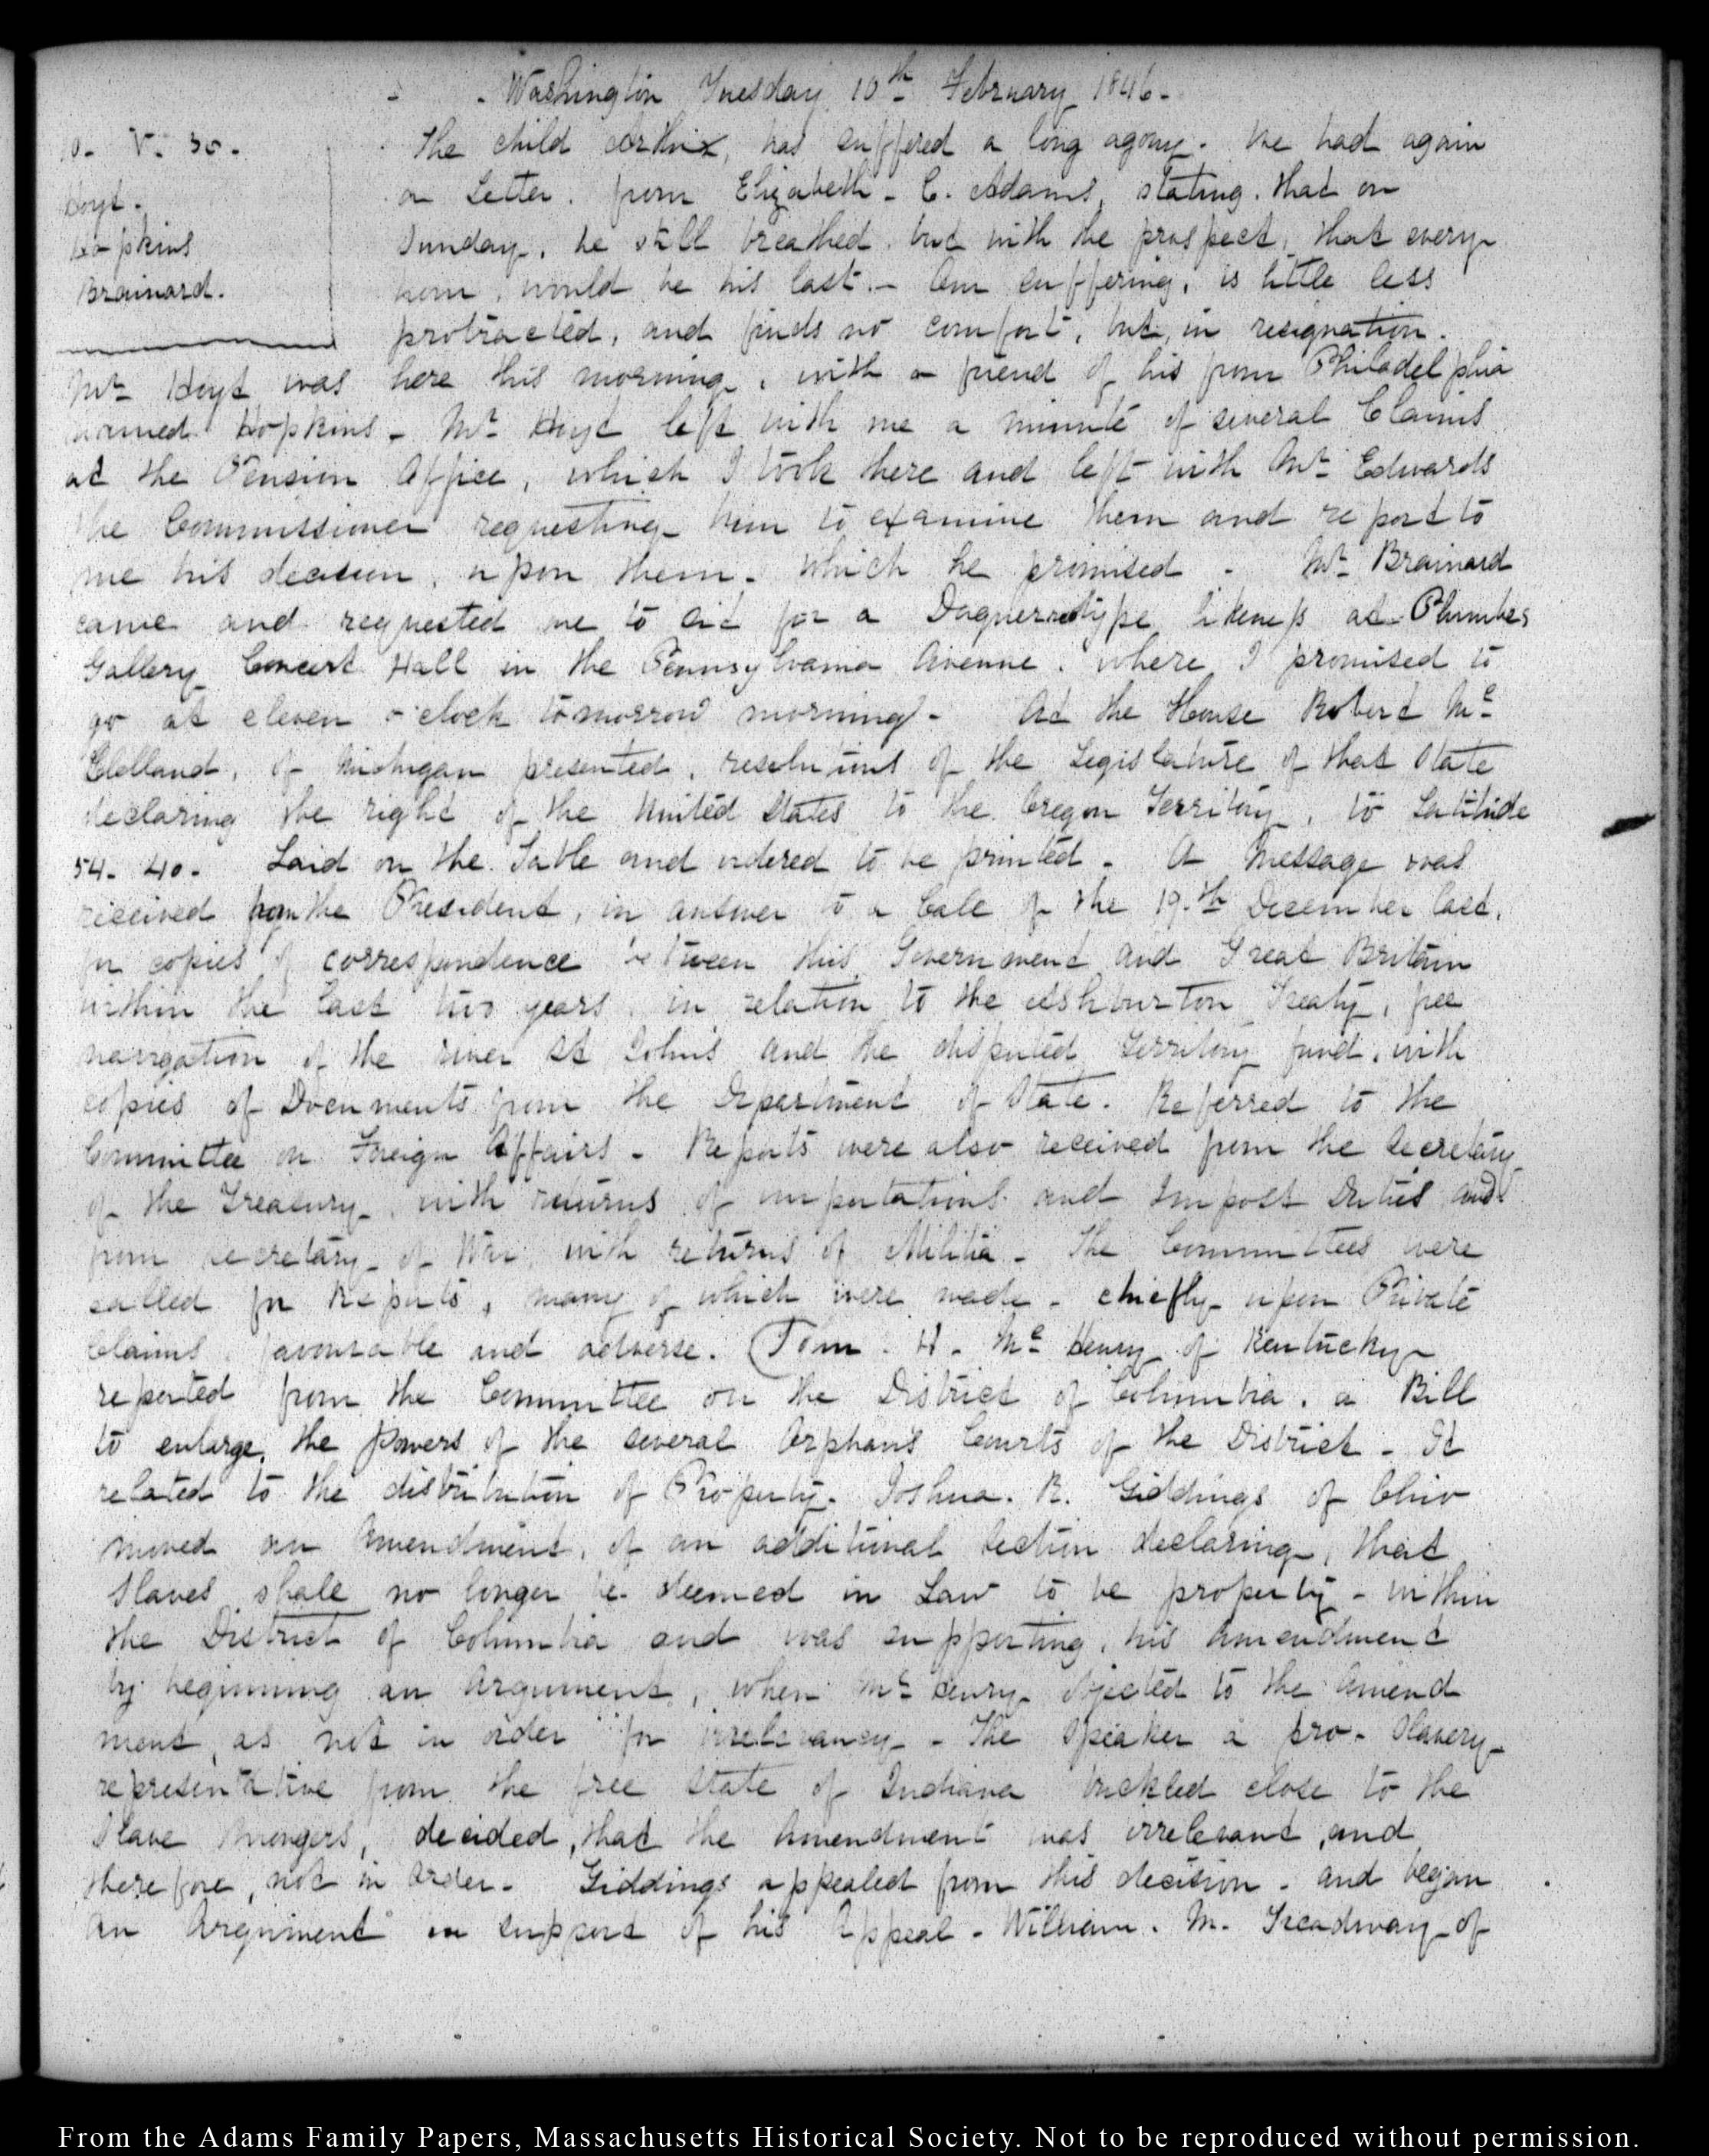 Washington Tuesday 10th February 1846.
10. V. 30.
Hoyt.
Hopkins
Brainard.
The child Arthur, has suffered a long agony. We had again
a Letter from Elizabeth. C. Adams, stating that on
Sunday, he still breathed but with the prospect, that every
hour, would be his last. Our suffering, is little less
protracted, and finds no comfort, but, in resignation.
Mr Hoyt was here this morning, with a friend of his from Philadelphia
named Hopkins. Mr Hoyt left with me a minute of several Claims
at the Pension Office, which I took there and left with Mr Edwards
the Commissioner requesting him to examine them and report to
me his decision, upon them. which he promised. Mr Brainard
came and requested me to sit for a Daguerreotype likeness at Plumbes
Gallery Concert Hall in the Pennsylvania Avenue. where I promised to
go at eleven o'clock tomorrow morning. At the House Robert Mc
Clelland, of Michigan presented, resolutions of the Legislature of that State
declaring the right of the United States to the Oregon Territory, to Latitude
54. 40. Laid on the Table and ordered to be printed. A Message was
received from the President, in answer to a Call of the 19.th December last,
for copies of correspondence between this Government and Great Britain
within the last two years, in relation to the Ashburton Treaty, free
navigation of the river St Johns and the disputed Territory fund, with
copies of Documents from the Department of State. Referred to the
Committee on Foreign Affairs. Reports were also received from the Secretary
of the Treasury, with returns of importations and Impost Duties and
from Secretary of War, with returns of Militia. The Committees were
called for Reports, many of which were made. chiefly upon Private
Claims favourable and adverse. John. H. Mc Henry of Kentucky
reported from the Committee on the District of Columbia, a Bill
to enlarge, the Powers of the several Orphans Courts of the District. It
related to the distribution of Property. Joshua. R. Giddings of Ohio
moved an Amendment, of an additional Section declaring, that
Slaves shall no longer be deemed in Law to be property. within
the District of Columbia and was supporting, his amendment
by beginning an Argument, when Mc Henry objected to the Amend
ment, as not in order for irrelevancy. The Speaker a pro-Slavery
representative from the free State of Indiana buckled close to the
Slave Mongers, decided, that the Amendment was irrelevant, and
therefore, not in Order. Giddings appealed from this decision. and began
an Argument in support of his Appeal. William. M. Treadway of
From the Adams Family Papers, Massachusetts Historical Society. Not to be reproduced without permission.